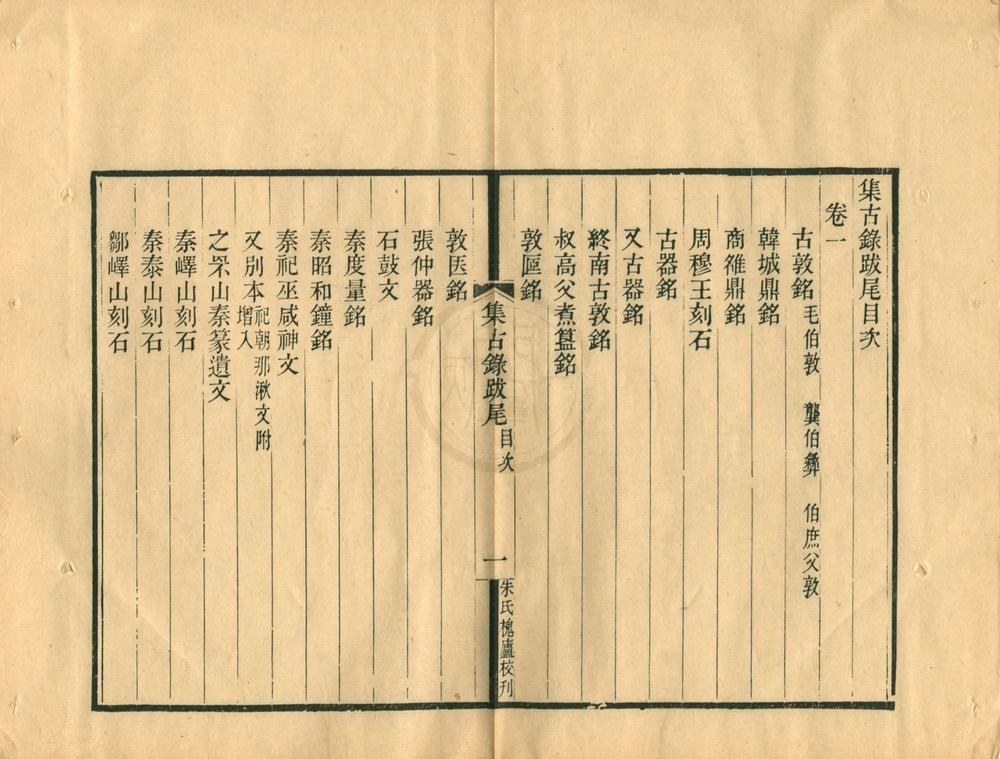 集古錄跋尾目次
卷一
古敦銘 毛伯敦 龔伯彝 伯庶父敦
韓城鼎銘
商雒鼎銘
周穆王刻石
古器銘
又古器銘
終南古敦銘
叔高父煮簋銘
敦匜銘
集古錄跋尾 目次
一
朱氏槐廬校刊
敦医銘
張仲器銘
石鼓文
秦度量銘
秦昭和鐘銘
秦祀巫咸神文
又別本 祀朝那湫文附
增入
之罘山秦篆遺文
秦嶧山刻石
秦泰山刻石
鄒嶧山刻石